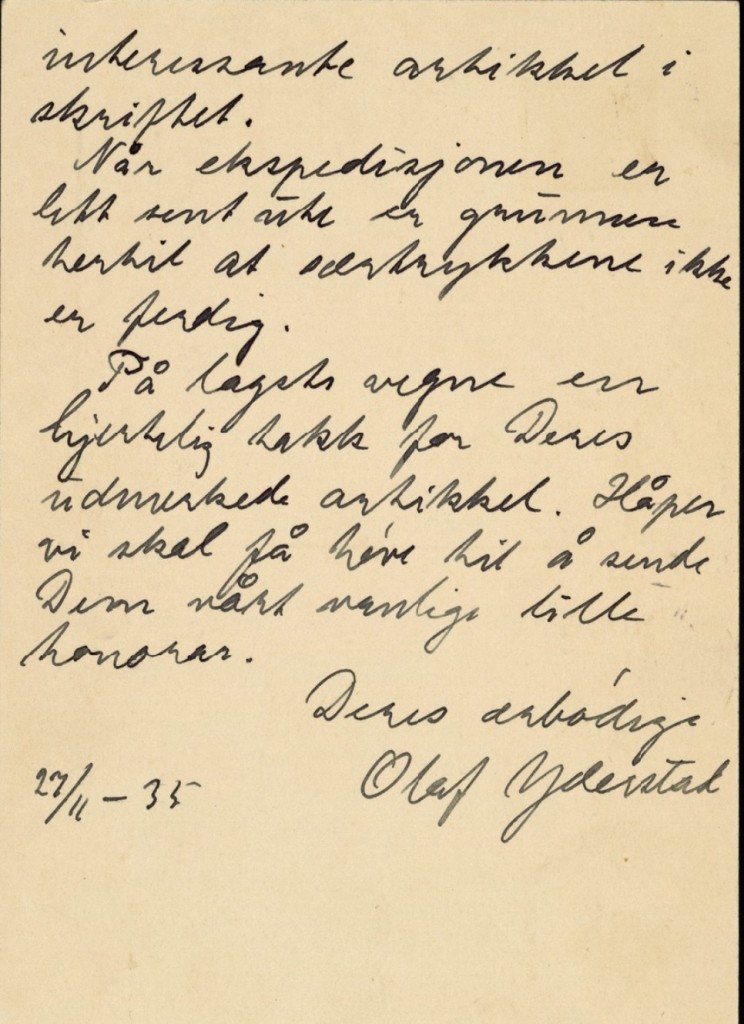 interessante artikkel i
skriftet.
Når ekspedisjonen er
litt sent ute er grunnen
hertil at særtrykkene ikke
er ferdig.
På lagets vegne en
hjertelig takk for Deres
udmerkede artikkel. Håper
vi skal få høve til å sende
Dem vårt vanlige lille
honorar.
Deres ærbødige
Olaf Yderstad
27/11 – 35